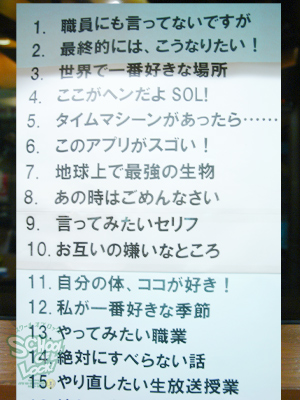 1. 職員にも言ってないですが
2. 最終的には、こうなりたい！
3. 世界で一番好きな場所
4. ここがヘンだよSOL!
5. タイムマシーンがあったら……
6. このアプリがスゴい！
7. 地球上で最強の生物
8. あの時はごめんなさい
9. 言ってみたいセリフ
10. お互いの嫌いなところ
11. 自分の体、ココが好き！
12. 私が一番好きな季節
13. やってみたい職業
14. 絶対にすべらない話
15. やり直したい生放送授業
School of Lock!